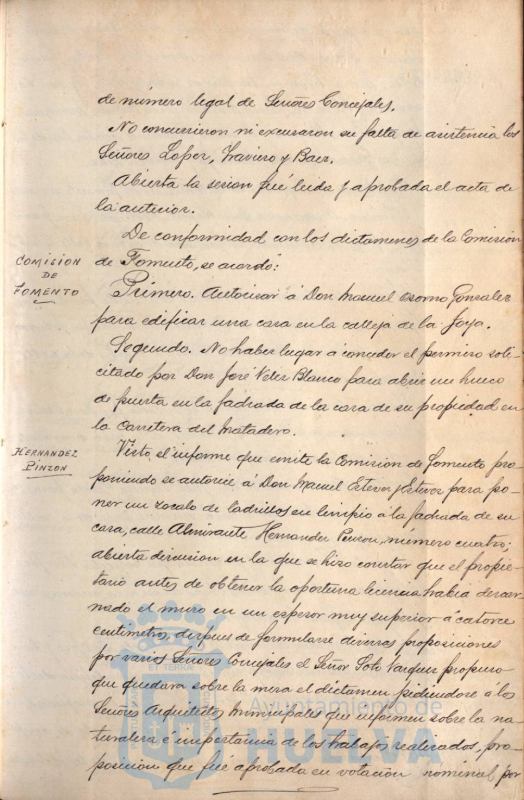 de número legal de Señores Concejales.
No concurrieron ni excusaron su falta de asistencia los
Señores Lopez, Traviero y Baez.
Abierta la sesion fué leida y aprobada el acta de
la anterior.
De conformidad con los dictamenes de la Comision
COMISION
DE
FOMENTO
de Fomento, se acordó:
Primero. Autorisar á Don Manuel Osorno Gonzalez
para edificar una casa en la calleja de la Joya.
Segundo. No haber lugar á conceder el permiso soli-
citado por Don José Velez Blanco para abrir un hueco
de puerta en la fachada de la casa de su propiedad en
la Carretera del Matadero.
HERNANDEZ
PINZON
Visto, el informe que emite la Comision de Fomento pro-
poniendo se autorice á Don Manuel Estevez y Estevez para po-
ner un zocalo de ladrillos en limpio á la fachada de su
casa, calle Almirante Hernandez Pinzon, número cuatro;
abierta discusion en la que se hizo constar que el propie-
tario antes de obtener la oportuna licencia habia descar-
nado el muro en un espesor muy superior á catorce
centimetros, despues de formularse diversas proposiciones
por varios Señores Concejales el Señor Soto Vazquez propuso
que quedara sobre la mesa el dictamen pidiendose á los
Señores Arquitectos Municipales que informen sobre la na-
turaleza é importancia de los trabajos realizados, pro-
posicion que fué aprobada en votacion nominal por
Ayuntamiento de
HUELVA